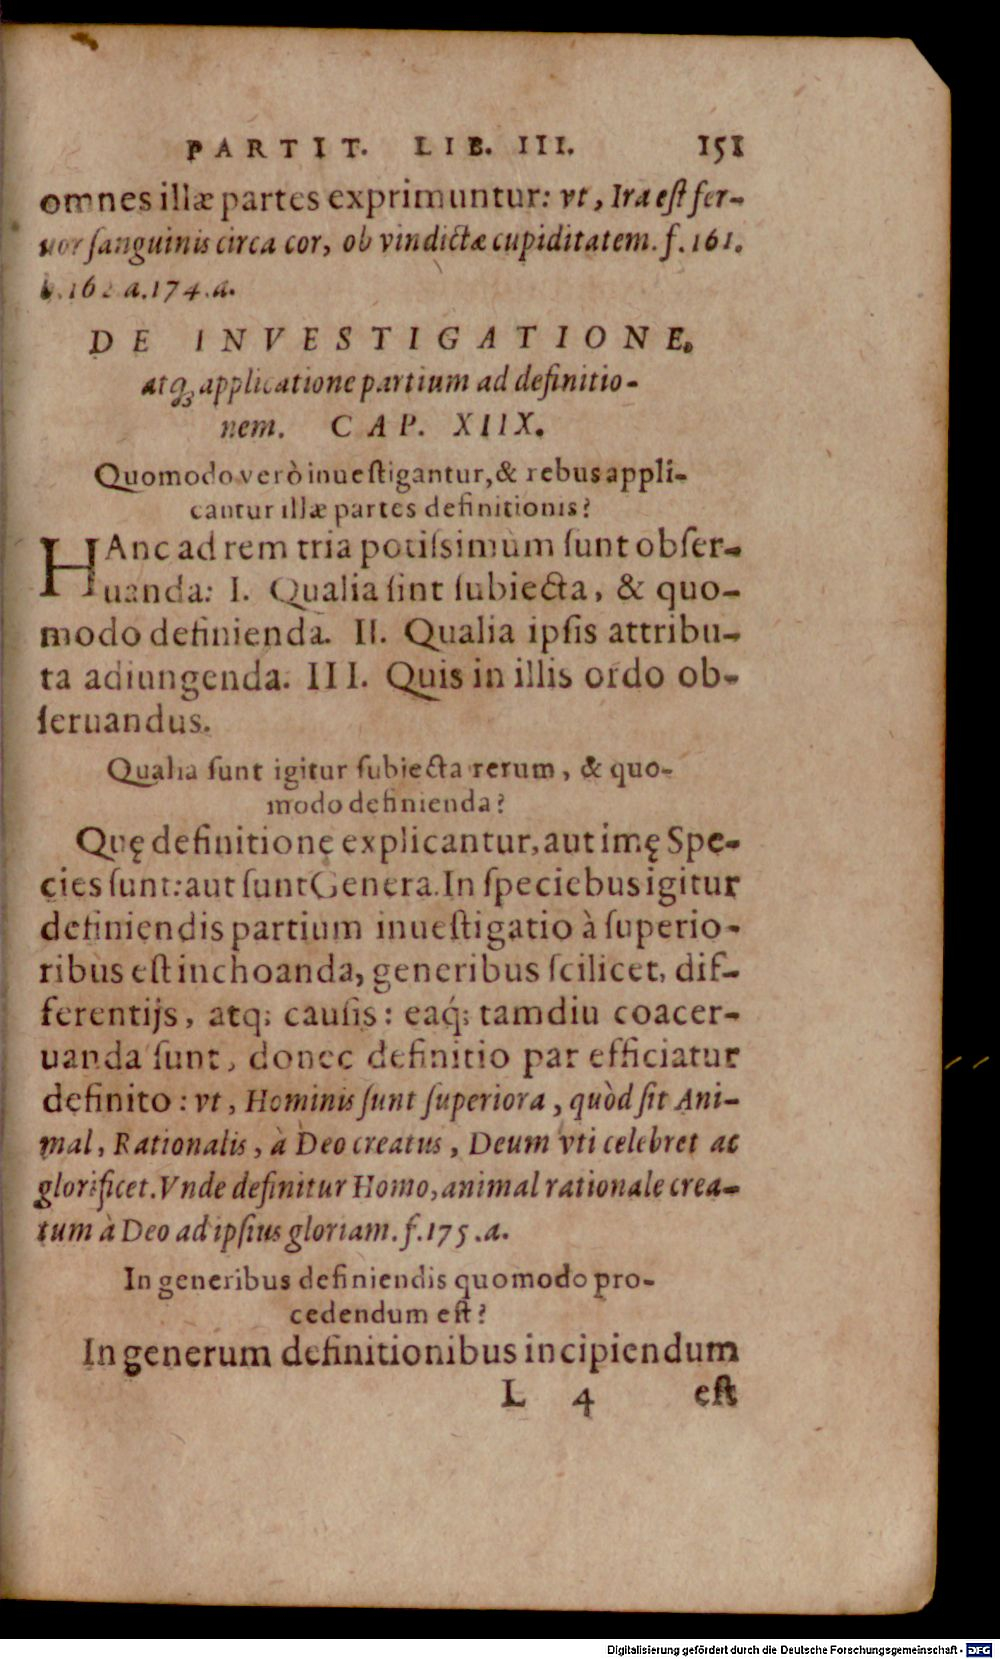 PARTIT. LIB. III. 151
omnes illæ partes exprimuntur: vt, Ira est fer-
uor ſanguinis circa cor, ob vindictæ cupiditatem. f. 161.
b. 162 a. 174. a.
DE INVESTIGATIONE,
atq; applicatione partium ad definitio-
nem. CAP. XIIX.
Quomodo verò inueſtigantur, & rebus appli-
cantur illæ partes definitionis?
HAnc ad rem tria potiſsimùm ſunt obſer-
uanda: I. Qualia ſint ſubiecta, & quo-
modo definienda. II. Qualia ipſis attribu-
ta adiungenda. III. Quis in illis ordo ob-
ſeruandus.
Qualia ſunt igitur ſubiecta rerum, & quo-
modo definienda?
Quę definitione explicantur, aut imę Spe-
cies ſunt: aut ſunt Genera. In ſpeciebus igitur
definiendis partium inueſtigatio à ſuperio-
ribus eſt inchoanda, generibus ſcilicet, dif-
ferentijs, atq; cauſis: eaq́; tamdiu coacer-
uanda ſunt, donec definitio par efficiatur
definito: vt, Hominis ſunt ſuperiora, quòd ſit Ani-
mal, Rationalis, à Deo creatus, Deum vti celebret ac
glorificet. Vnde definitur Homo, animal rationale crea-
tum à Deo ad ipſius gloriam. f. 175. a.
In generibus definiendis quomodo pro-
cedendum eſt?
In generum definitionibus incipiendum
L 4 eſt
Digitalisierung gefördert durch die Deutsche Forschungsgemeinschaft - DFG